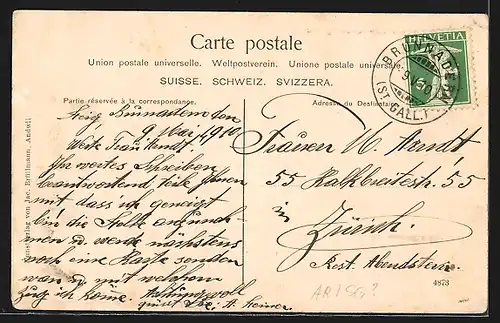 Carte postale
Union postale universelle. Weltpostverein. Unione postale universale.
SUISSE. SCHWEIZ. SVIZZERA.
Partie réservée à la correspondance.
Adresse du Destinataire.
HELVETIA
BRUNNADERN
(ST. GALL.)
Brunnadern den
9. Mai 1910
Werte Frau Arndt.
Ihr wertes Schreiben
beantwortend, teile Ihnen
mit dass ich geneigt
bin die Stelle anzuneh-
men u. werde nächstens
noch eine Karte senden
wan u. mit welchem
Zug ich komme. Achtungsvoll
Frauen M. Arndt
55 Kalkbreitestr. 55
in
Zürich.
Rest. Abendstern.
4873
AR / SG?